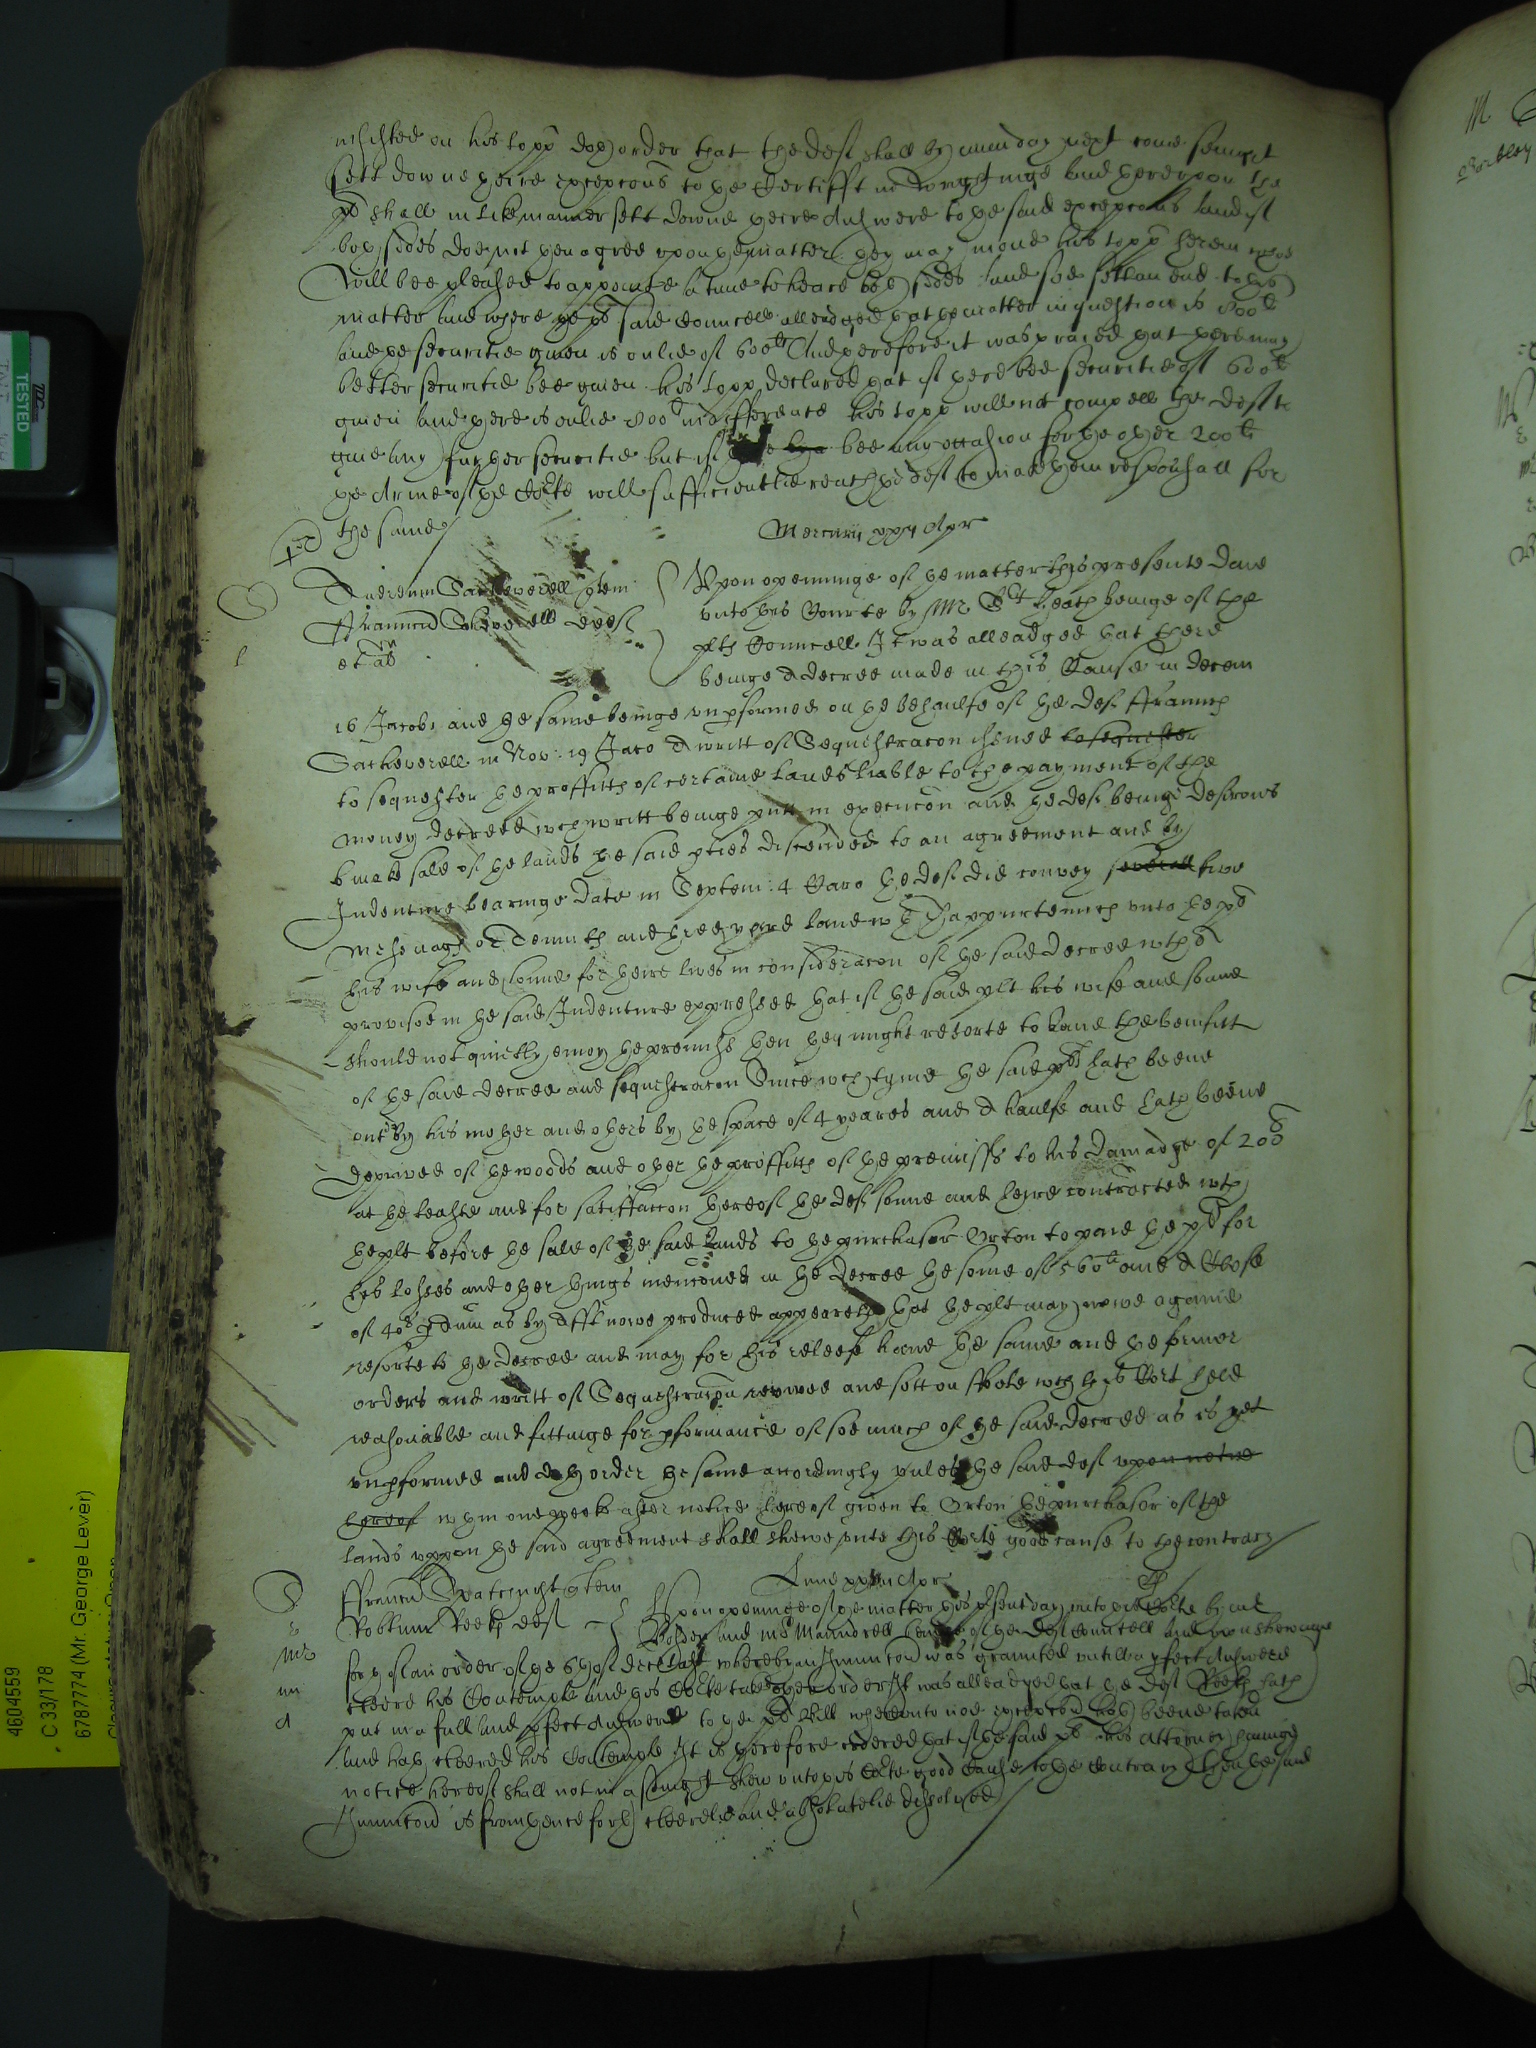 insisted on his lopp doth order that the deft shall by munday next come sennight
sett downe theire excepcons to the Certifft in wrytinge and thereupon the
plt shall in like manner sett downe theire Answere to the said excepcons and if
both sides doe not then agree upon the matter they may move his lopp herein whoe
will bee pleased to appointe a time to heare both sides and soe sett an end to this
matter and where the plts said Councell alleadged that the matter in question is 800li
and the securitie given is onlie of 600li And therefore it was praied that there may
better securitie bee given his lopp declared that if there bee securitie of 600li
given and there is onlie 800li in difference his lopp will not compell the deft to
give any further securitie but if there bee any occasion for the other 200li
the Arme of the Corte will sufficientlie reach the deft to make them responsall for
the same
Mercurij Apr
Sacheverell quem
Sacheverell deft
et al
Upon openinge of the matter this presente daie
unto this Courte by Mr Heath beinge of the
plts Councell It was alleadged that there
beinge a decree made in this Cause in Decem
16 Jacobi and the same beinge unpformed on the behaulfe of the deft Francis
Sacheverell in Nov: 19 Jaco a writt of Sequestracon issued to sequester
to sequester the proffitts of certaine lands liable to the payment of the
money decreed wch writt beinge putt in execucon and the deft beinge desirous
to make sale of the lands the said pties discended to an agreement and by
Indenture bearinge date in Septem: 4 Caro the deft did convey severall two
messuages or Tenemts and land wth Thappurtennces unto the plt
his wife and sonne for theire lives in consideracon of the said decree wth
provisoe in the said Indenture expressed that if the said plt his wife and sonne
should not quietly enioy the premiss then they might resorte to have the benifitt
of the said decree and sequestracon Since wch tyme the said plt hath beene
out by his mother and others by the space of 4 yeares and a haulfe and hath beene
deprived of the woods and other the proffitts of the premisss to his damadge of 200li
at the leaste and for satisfaccon thereof the defts sonne and heire contracted wth
the plt before the sale of the said lands to the purchasor Orton to paie the plt for
his losses and other things mencioned in the decree the some of 560li and a
of 40s as by Afft nowe produced appeareth that the plt may nowe againe
resorte to the decree and may for his releefe have the same and the former
orders and writt of Sequestracon revived and sett on foote wch this Cort held
reasonable and fittinge for pformance of soe much of the said decree as is yet
unpformed and doth order the same accordingly unles the said deft upon notice
thereof wthin one weeke after notice hereof given to Orton the purchasor of the
lands uppon the said agreement shall shewe unto this Corte good cause to the contrary
deft
Upon openinge of the matter this psent day unto this Corte by
and Mr beinge of the defts Councell and upon shewinge
forth of an order of the 6th of Dec last whereby an Iniunccon was graunted untill a pfect Answere
cleere his Contempte and this Corte take other order It was alleadged that the deft hath
put in a full and pfect Answere to the plts Bill whereunto noe excepcon hath beene taken
and hath cleered his Contempte It is therefore ordered that if the said plt his attorney haveinge
notice hereof shall not in a sennight shew unto this Corte good Cause to the Contrary Then the said
Iniunccon is from henceforth cleerelie and absolutelie dissolved
TESTED
4604559
C 33/178
6787774 (Mr. George Levier)